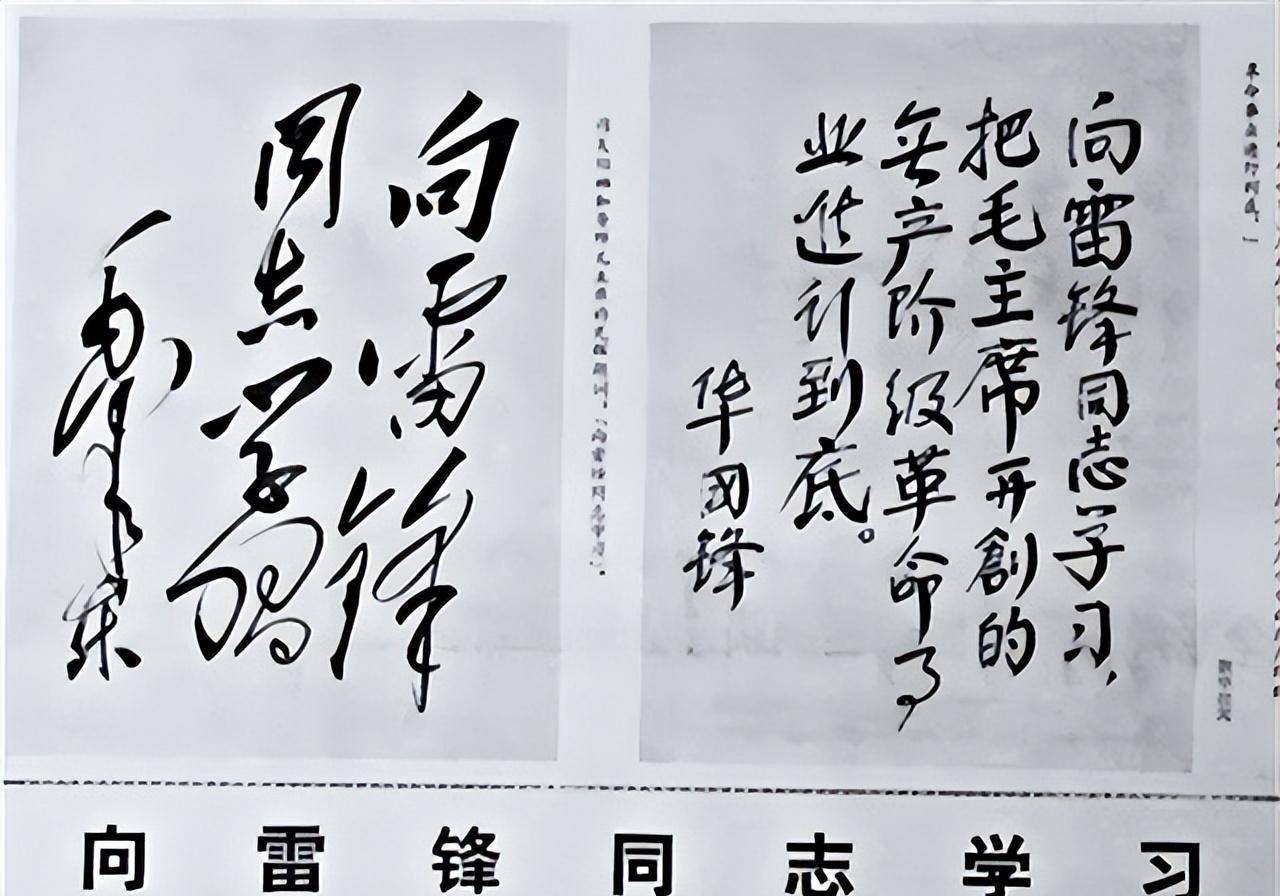 向雷锋同志学习，
把毛主席开創的
無产阶级革命事
业进行到底。
华国锋
向雷锋
同志学習
毛泽东
向雷锋同志学习